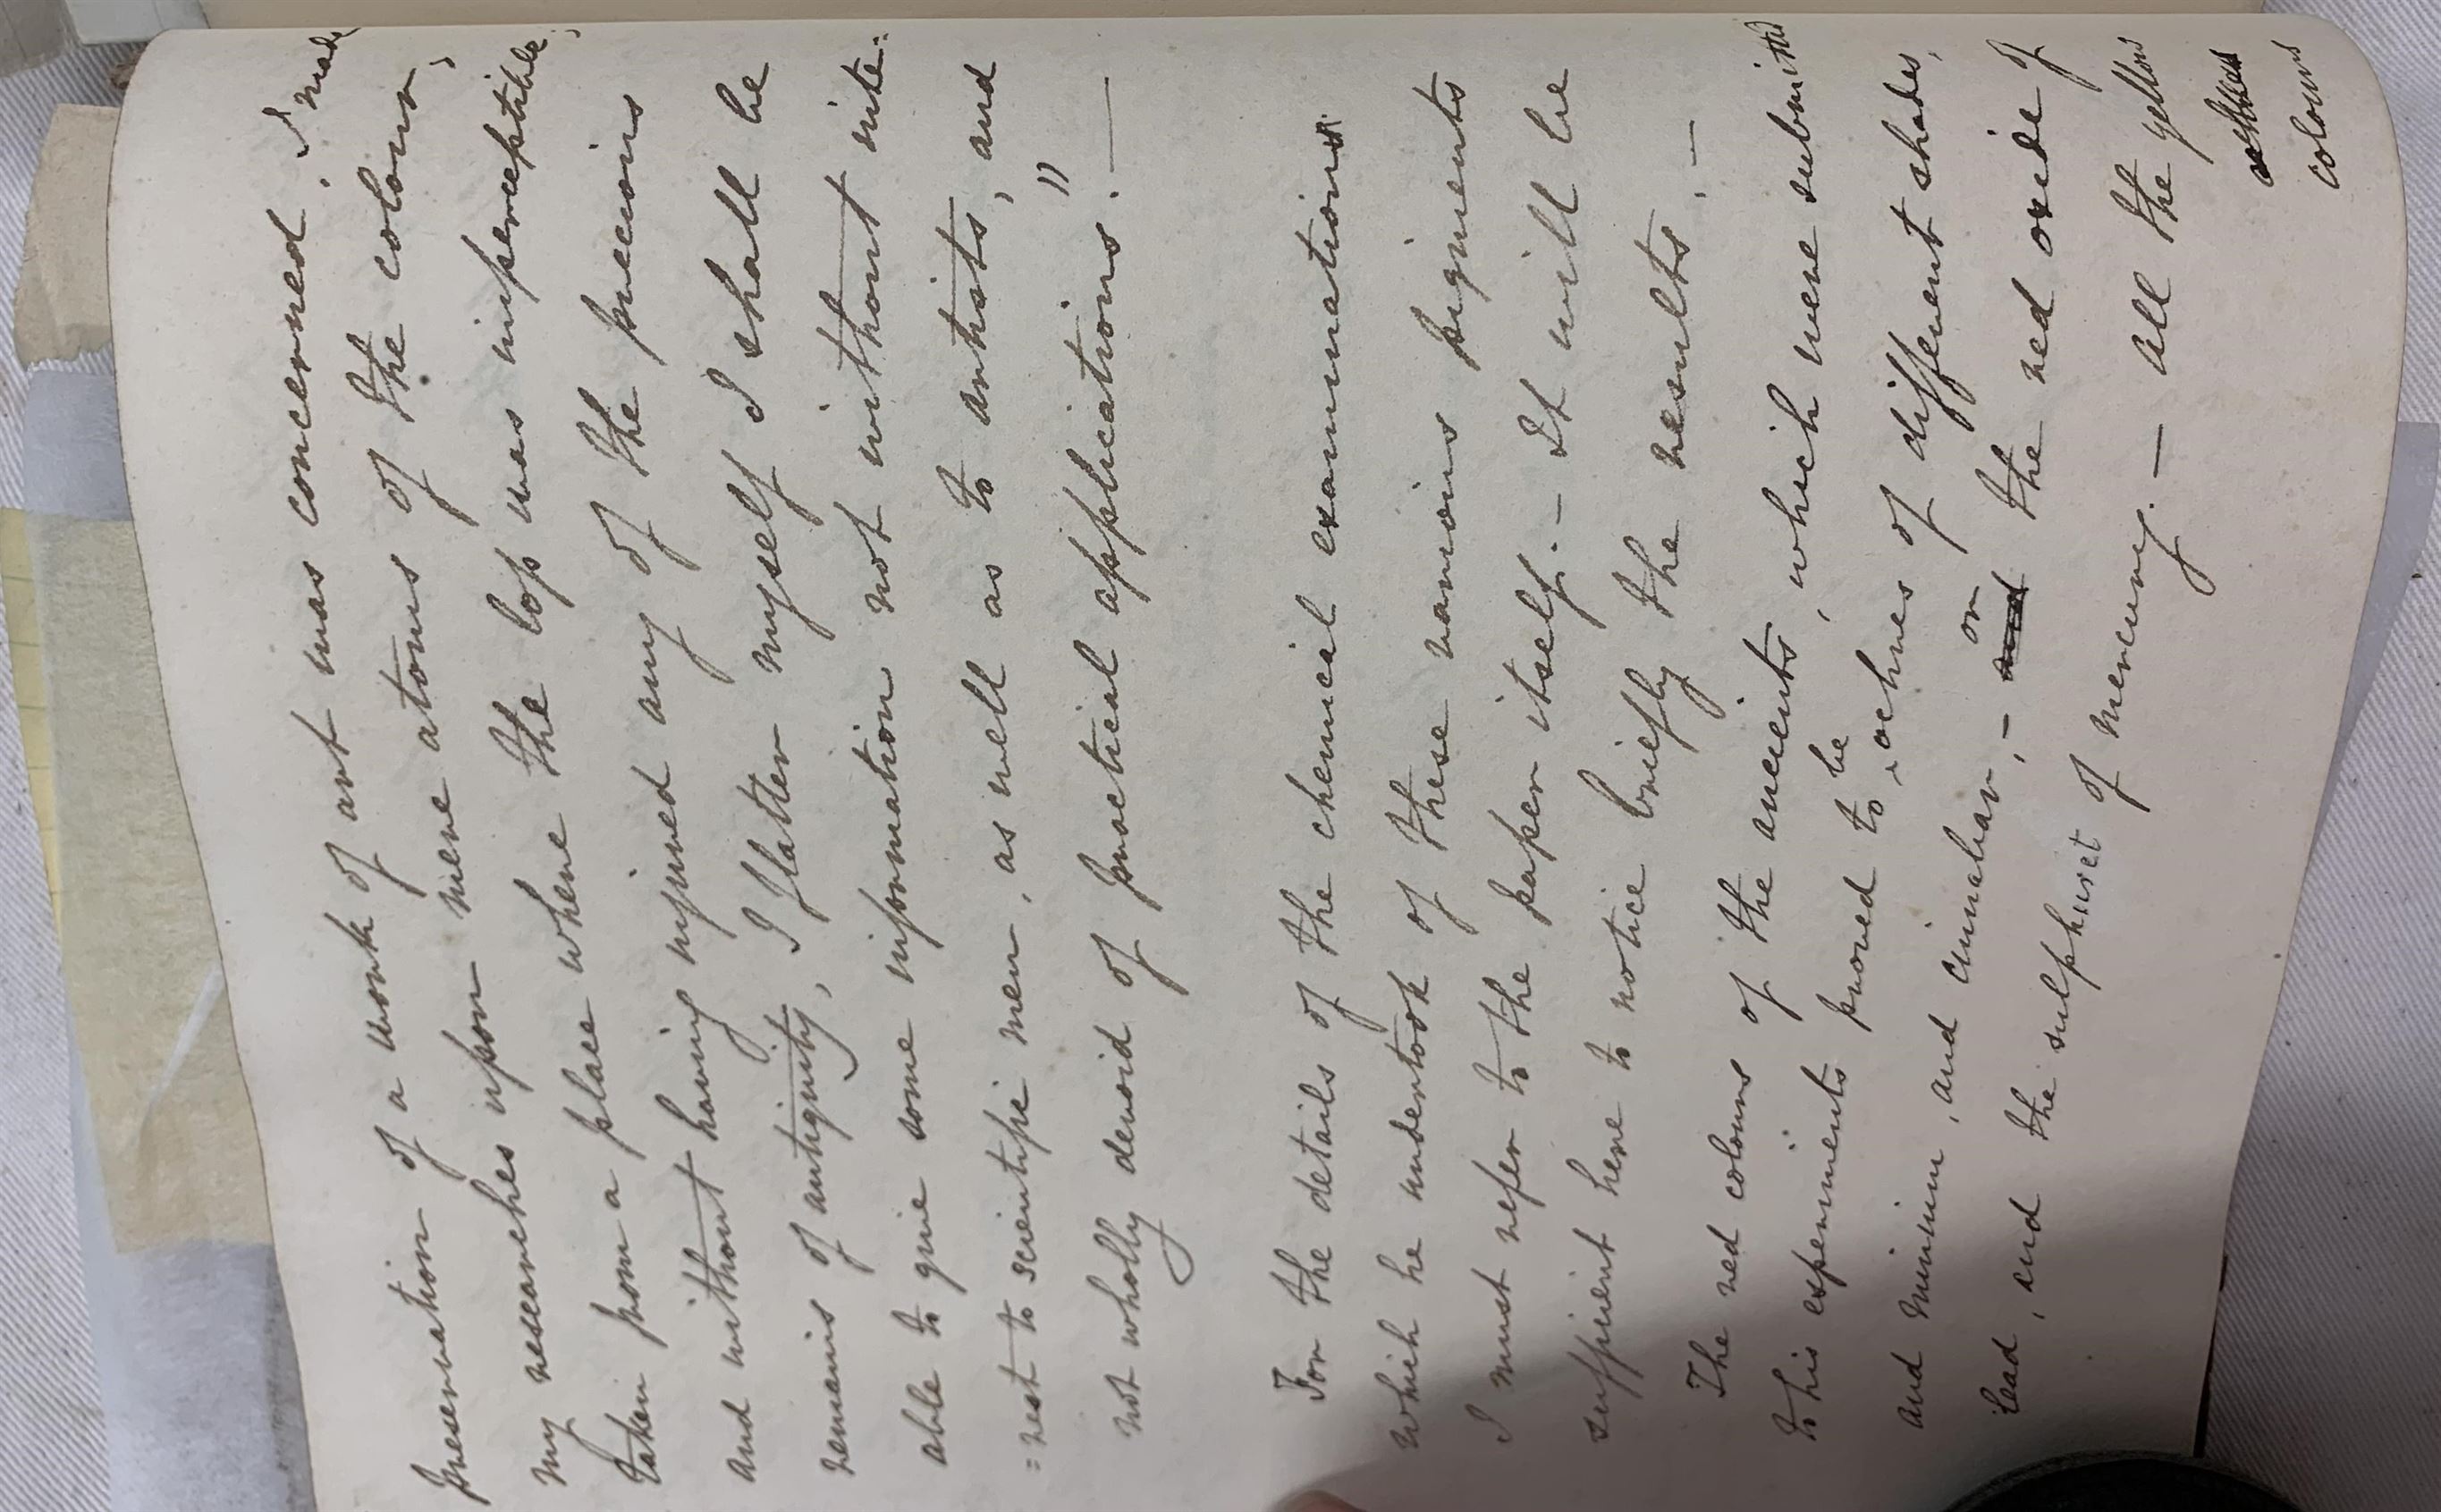 preservation of a work of art was concerned. I made
my researches upon mere atoms of the colour,
taken from a place where the loss was imperceptible;
and without having injured any of the precious
remains of antiquity, I flatter myself I shall be
able to give some information not without inte=
=rest to scientific men, as well as to artists, and
not wholly devoid of practical applications." —
For the details of the chemical examination
which he undertook of these various pigments
I must refer to the paper itself. — It will be
sufficient here to notice briefly the results. —
The red colours of the ancients, which were submitted
to his experiments proved to be ochres of different shades,
and minium, and cinnabar, — and or the red oxide of
lead, and the sulphuret of mercury. — All the yellow
colours